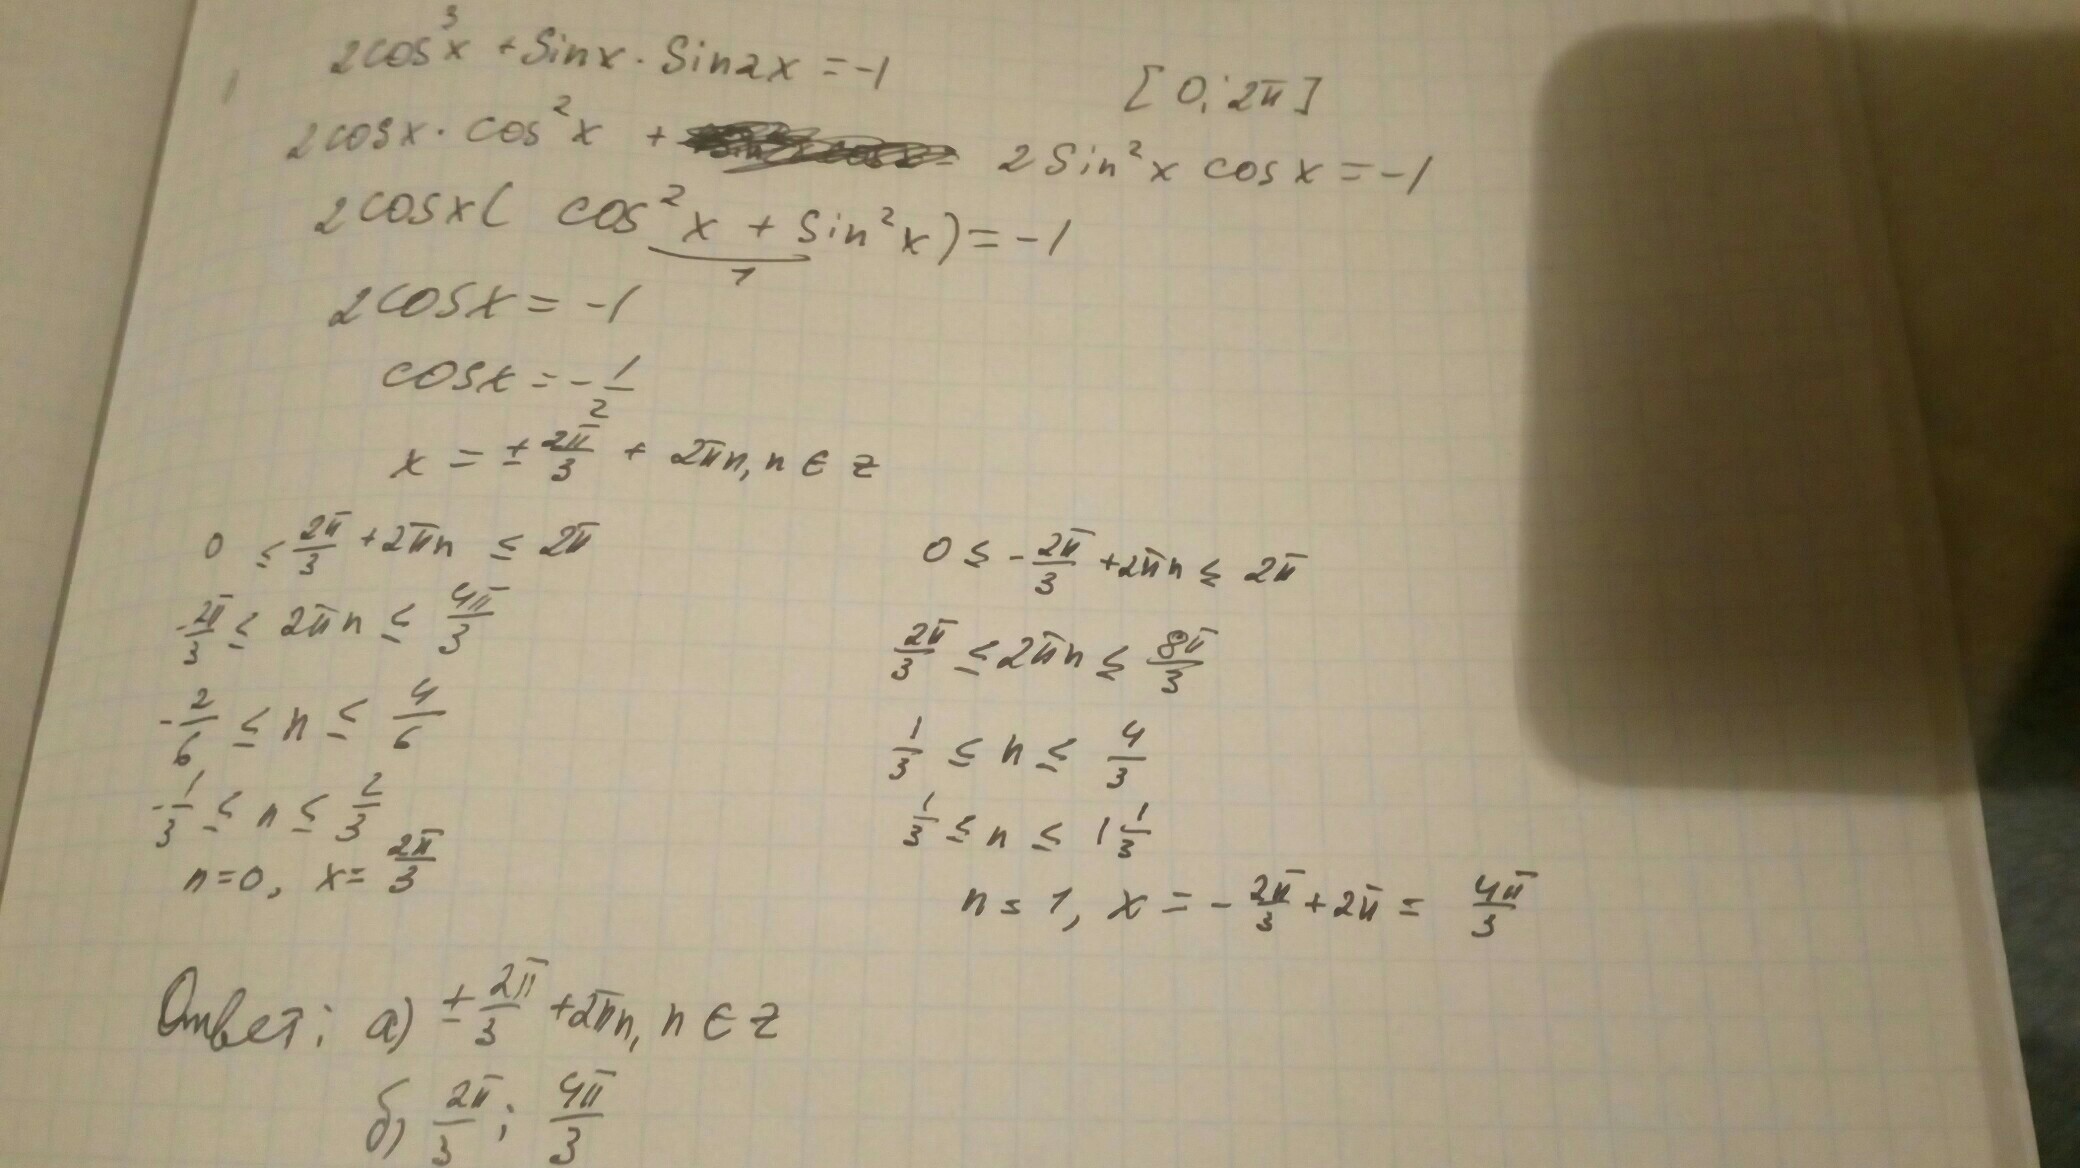 2cos³x + sinx · sin2x = -1 [0; 2π]
2cosx · cos²x + 2sin²x cosx = -1
2cosx( cos²x + sin²x) = -1
1
2cosx = -1
cosx = -1/2
x = ± 2π/3 + 2πn, n ∈ z
0 ≤ 2π/3 + 2πn ≤ 2π
-2π/3 ≤ 2πn ≤ 4π/3
-2/6 ≤ n ≤ 4/6
-1/3 ≤ n ≤ 2/3
n=0, x= 2π/3
0 ≤ -2π/3 + 2πn ≤ 2π
2π/3 ≤ 2πn ≤ 8π/3
1/3 ≤ n ≤ 4/3
1/3 ≤ n ≤ 1 1/3
n = 1, x = -2π/3 + 2π = 4π/3
Ответ: а) ± 2π/3 + 2πn, n ∈ z
б) 2π/3; 4π/3